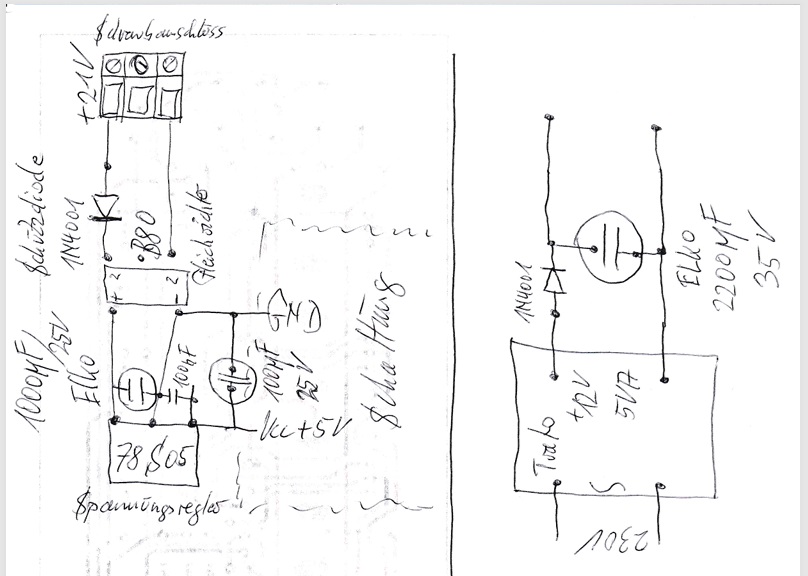 Schraubanschloss
+21V
Schüzdiode
1N4001
B80
Gleichrichter
+ 2
- 2
GND
1000µF/
25V
Elko
100nF
100µF
25V
Vcc +5V
78S05
Spannungsregler
Schaltung
1N4001
Elko
2200µF
35V
Trafo
+12V
5VA
230V